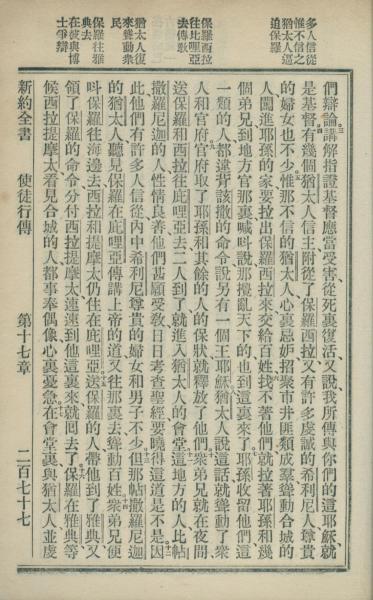 多人信從
惟不信之
猶太人逼
迫保羅
保羅西拉
往比哩亞
去傳敎
猶太人復
來聳動衆
民
保羅往雅
典去
在彼與博
士爭辯
們辯論講解指證基督應當受害從死裏復活又說我所傳與你們的這耶穌就
是基督有幾個猶太人信主附從了保羅西拉又有許多虔誠的希利尼人尊貴
的婦女也不少惟那不信的猶太人心裏忌妒招聚市井匪類成羣聳動合城的
人闖進耶孫的家要拉出保羅西拉來交給百姓找不著他們就拉著耶孫和幾
個弟兄到地方官那裏喊呌說那攪亂天下的也到這裏來了耶孫收留他們這
一類的人都違背該撒的命令說另有一個王耶穌猶太人說這話就聳動了衆
人和官府官府取了耶孫和其餘的人的保狀就釋放了他們衆弟兄就在夜間
送保羅和西拉往庇哩亞去二人到了就進入猶太人的會堂這地方的人比帖
撒羅尼迦的人性情良善他們甚願受敎日日考查聖經要曉得這道是不是因
此他們有許多人信從內中希利尼尊貴的婦女和男子不少但那帖撒羅尼迦
的猶太人聽見保羅在庇哩亞傳講上帝的道又往那裏去聳動百姓衆弟兄便
呌保羅往海邊去西拉和提摩太仍住在庇哩亞送保羅的人帶他到了雅典又
領了保羅的命令分付西拉提摩太速速到他這裏來就囘去了保羅在雅典等
候西拉提摩太看見合城的人都事奉偶像心裏憂急在會堂裏與猶太人並虔
新約全書 使徒行傳 第十七章 二百七十七